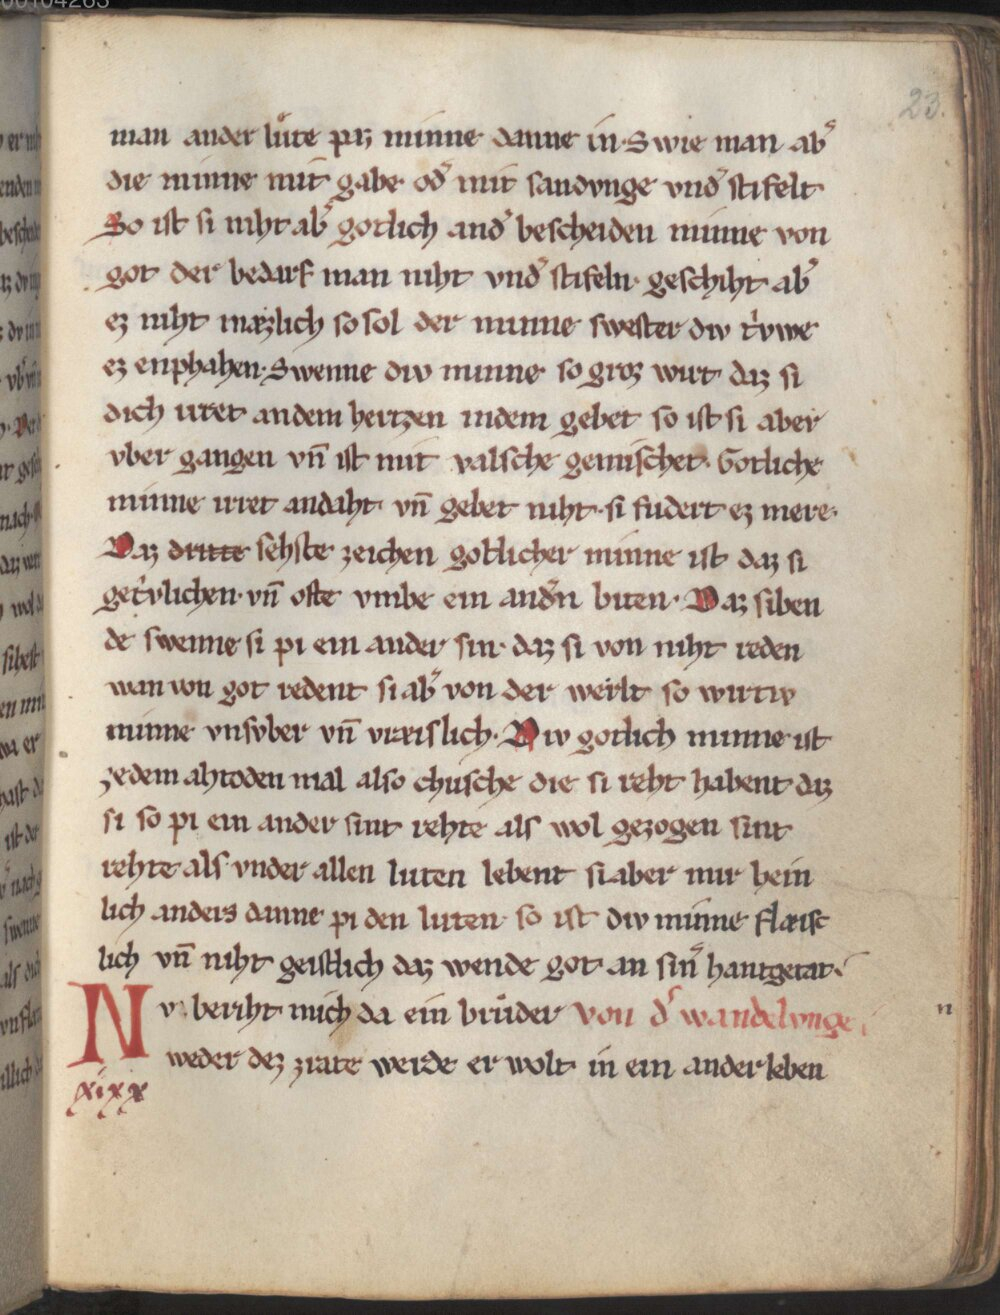 00104263
23.
man ander lúte prĩ minne danne in· Swie man ab᷑
die minne mit gabe od᷑ mit sandvnge vnd᷑ stifelt
So ist si niht ab᷑ gotlich and᷑ bescheiden minne von
got der bedarf man niht vnd᷑ stifeln· geschiht ab᷑
ez niht mæzlich so sol der minne swester div trvwe
ez enphahen· Swenne div minne so groz wirt daz si
dich irret an dem hertzen in dem gebet so ist si aber
vber gangen vn̄ ist mit valsche gemischet· Gotliche
minne irret andaht vn̄ gebet niht· si fudert ez mere·
Daz dritte sehste zeichen gotlicher minne ist daz si
getrvlichen· vn̄ ofte vmbe ein and᷑n biten· Daz siben
de swenne si pi ein ander sin· daz si von niht reden
wan von got redent si ab᷑ von der werlt so wirt iv
minne vnsvber vn̄ vræislich· Div gotlich minne ist
zedem ahtoden mal also chusche die si reht habent daz
si so pi ein ander sint rehte als wol gezogen sint
rehte als vnder allen luten lebent si aber mir hein
lich anders danne pi den luten· so ist div minne flæisc
lich vn̄ niht geistlich daz wende got an sin᷑ hantgetat·
Nv beriht mich da ein brůder von d᷑ wandelvnge
weder dez zirate werde er wolt in ein ander leben
xixx
n